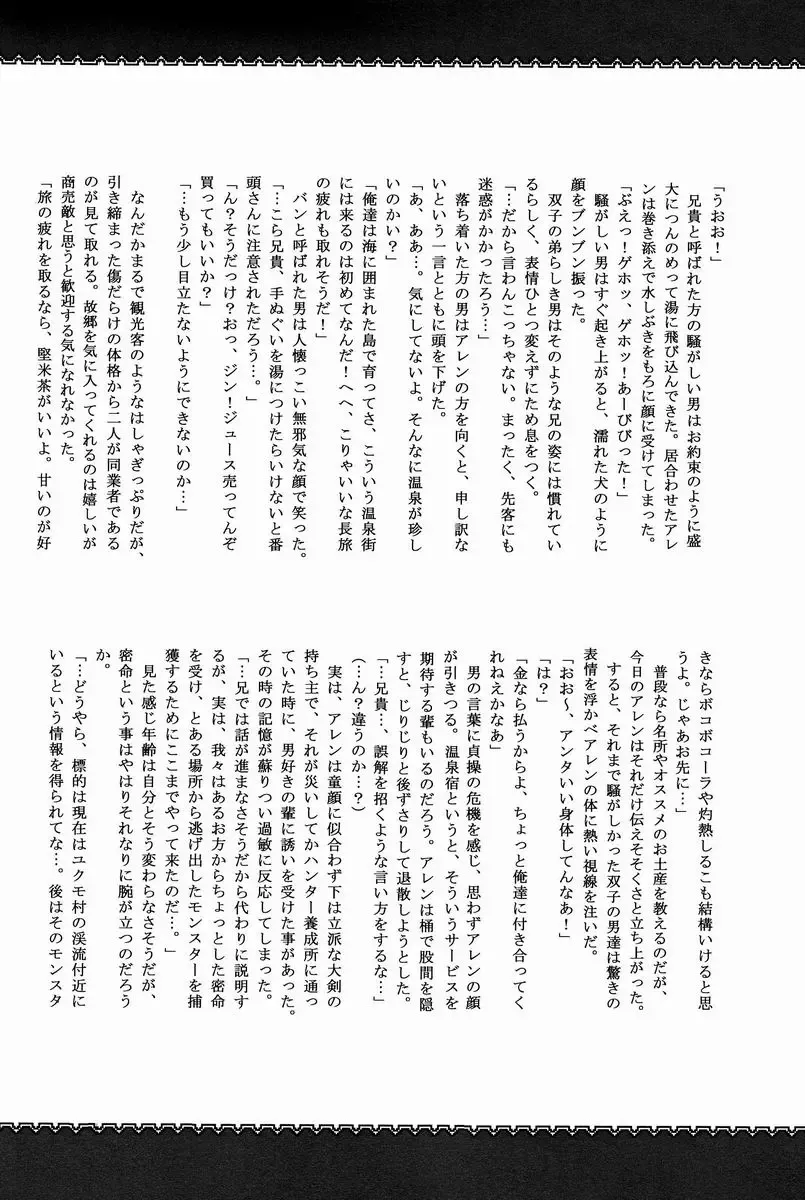 「うおお！」
　兄貴と呼ばれた方の騒がしい男はお約束のように盛
大につんのめって湯に飛び込んできた。居合わせたアレ
ンは巻き添えで水しぶきをもろに顔に受けてしまった。
「ぶえっ！ゲホッ、ゲホッ！あーびびった！」
　騒がしい男はすぐ起き上がると、濡れた犬のように
顔をブンブン振った。
　双子の弟らしき男はそのような兄の姿には慣れてい
るらしく、表情ひとつ変えずにため息をつく。
「…だから言わんこっちゃない。まったく、先客にも
迷惑がかかったろう…」
　落ち着いた方の男はアレンの方を向くと、申し訳な
いという一言とともに頭を下げた。
「あ、ああ…。気にしてないよ。そんなに温泉が珍し
いのかい？」
「俺達は海に囲まれた島で育ってさ、こういう温泉街
には来るのは初めてなんだ！へへ、こりゃいいな長旅
の疲れも取れそうだ！」
　バンと呼ばれた男は人懐っこい無邪気な顔で笑った。
「…こら兄貴、手ぬぐいを湯につけたらいけないと番
頭さんに注意されただろう…。」
「ん？そうだっけ？おっ、ジン！ジュース売ってんぞ
買ってもいいか？」
「…もう少し目立たないようにできないのか…」
　なんだかまるで観光客のようなはしゃぎっぷりだが、
引き締まった傷だらけの体格から二人が同業者である
のが見て取れる。故郷を気に入ってくれるのは嬉しいが
商売敵と思うと歓迎する気になれなかった。
「旅の疲れを取るなら、堅米茶がいいよ。甘いのが好
きならボコボコーラや灼熱しるこも結構いけると思
うよ。じゃあお先に…」
　普段なら名所やオススメのお土産を教えるのだが、
今日のアレンはそれだけ伝えそそくさと立ち上がった。
　すると、それまで騒がしかった双子の男達は驚きの
表情を浮かべアレンの体に熱い視線を注いだ。
「おお～、アンタいい身体してんなあ！」
「は？」
「金なら払うからよ、ちょっと俺達に付き合ってく
れねえかなあ」
　男の言葉に貞操の危機を感じ、思わずアレンの顔
が引きつる。温泉宿というと、そういうサービスを
期待する輩もいるのだろう。アレンは桶で股間を隠
すと、じりじりと後ずさりして退散しようとした。
「…兄貴…、誤解を招くような言い方をするな…」
（…ん？違うのか…？）
　実は、アレンは童顔に似合わず下は立派な大剣の
持ち主で、それが災いしてかハンター養成所に通っ
ていた時に、男好きの輩に誘いを受けた事があった。
その時の記憶が蘇りつい過敏に反応してしまった。
「…兄では話が進まなさそうだから代わりに説明す
るが、実は、我々はあるお方からちょっとした密命
を受け、とある場所から逃げ出したモンスターを捕
獲するためにここまでやって来たのだ…。」
　見た感じ年齢は自分とそう変わらなさそうだが、
密命という事はやはりそれなりに腕が立つのだろう
か。
「…どうやら、標的は現在はユクモ村の渓流付近に
いるという情報を得られてな…。後はそのモンスタ